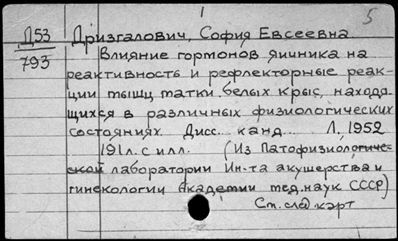 1
5
Д53
793
Дризгалович, София Евсеевна
Влияние гормонов яичника на
реактивность и рефлекторные реак-
ции мышц матки белых крыс, находя-
щихся в различных физиологических
состояниях. Дисс. канд. Л, 1952
191л. с илл. (Из Патофизиологиче-
ской лаборатории Ин-та акушерства и
гинекологии Академии мед. наук СССР)
См. след карт